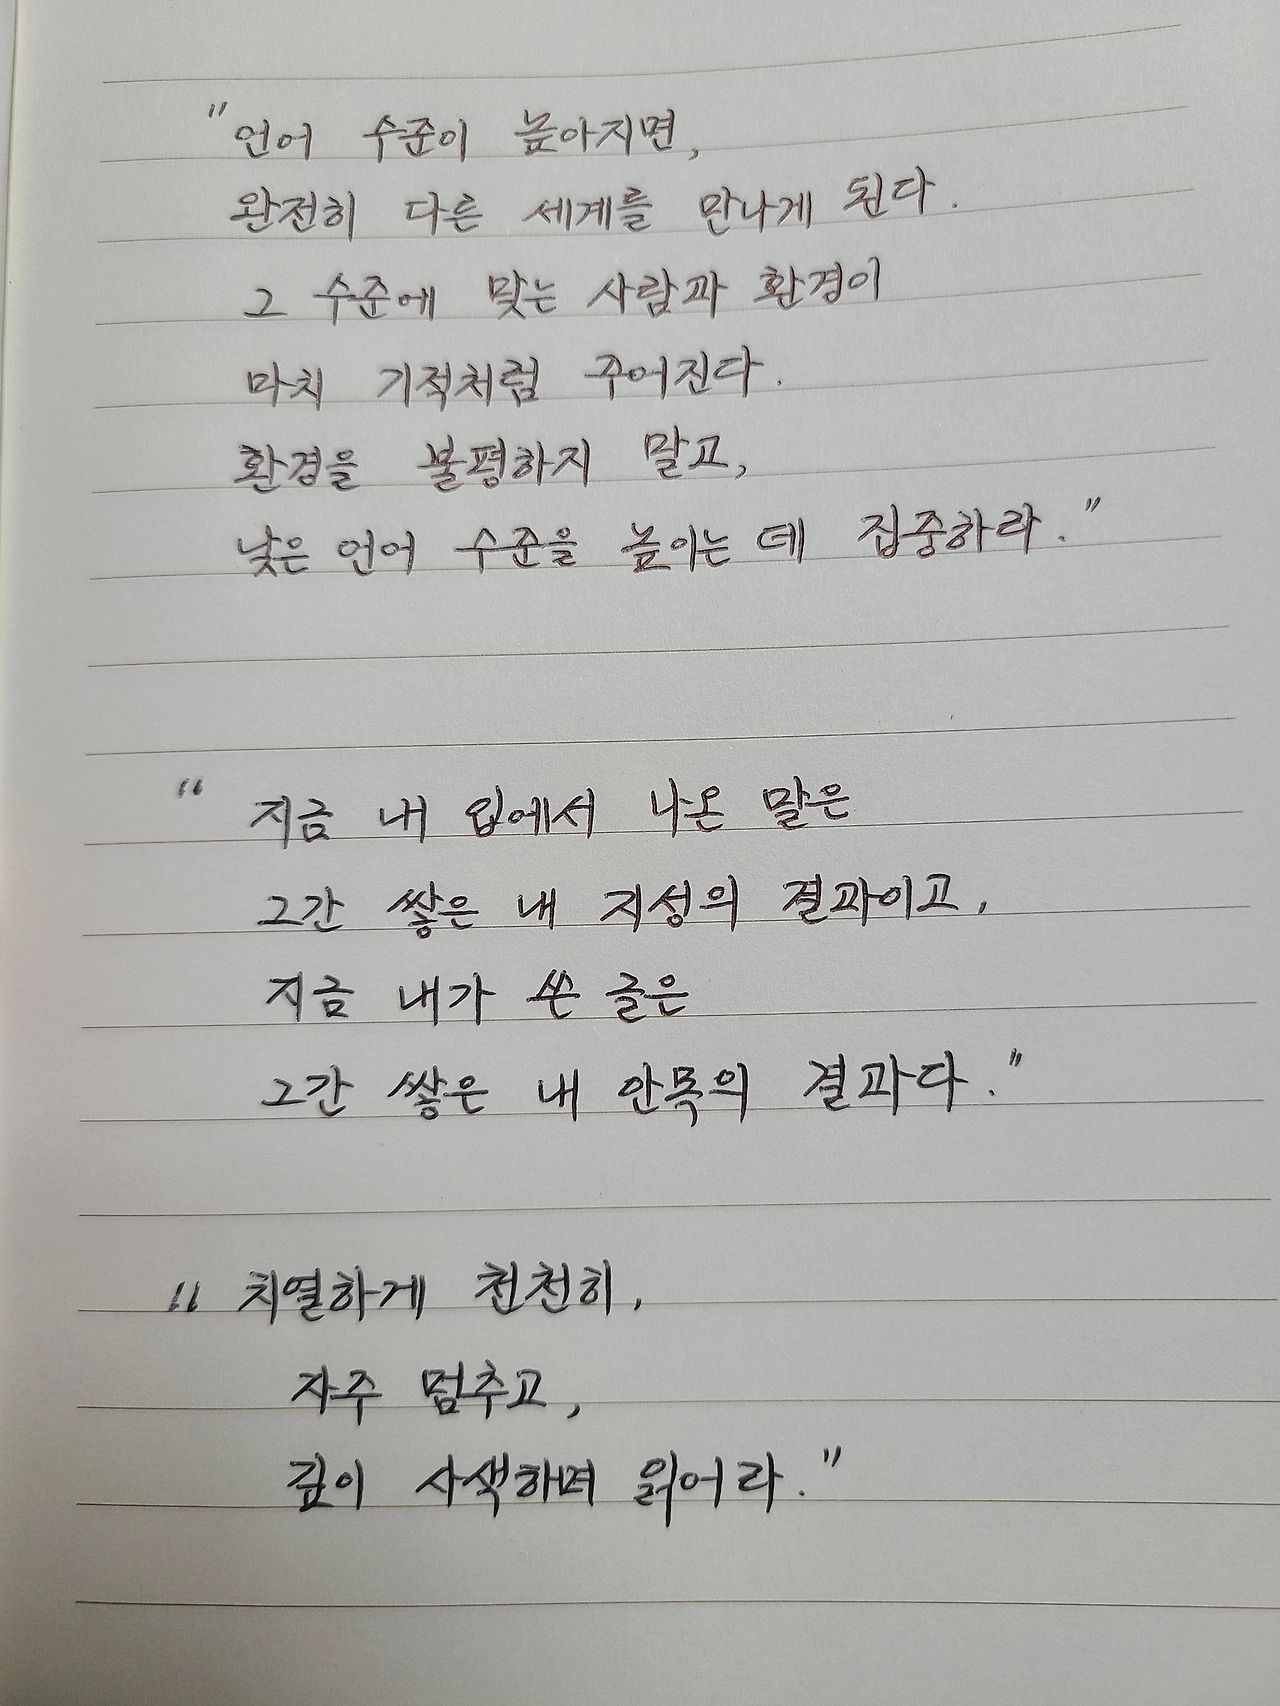 "언어 수준이 높아지면,
완전히 다른 세계를 만나게 된다.
그 수준에 맞는 사람과 환경이
마치 기적처럼 주어진다.
환경을 불평하지 말고,
낮은 언어 수준을 높이는 데 집중하라."
"지금 내 입에서 나온 말은
그간 쌓은 내 지성의 결과이고,
지금 내가 쓴 글은
그간 쌓은 내 안목의 결과다."
"치열하게 천천히,
자주 멈추고,
깊이 사색하며 읽어라."